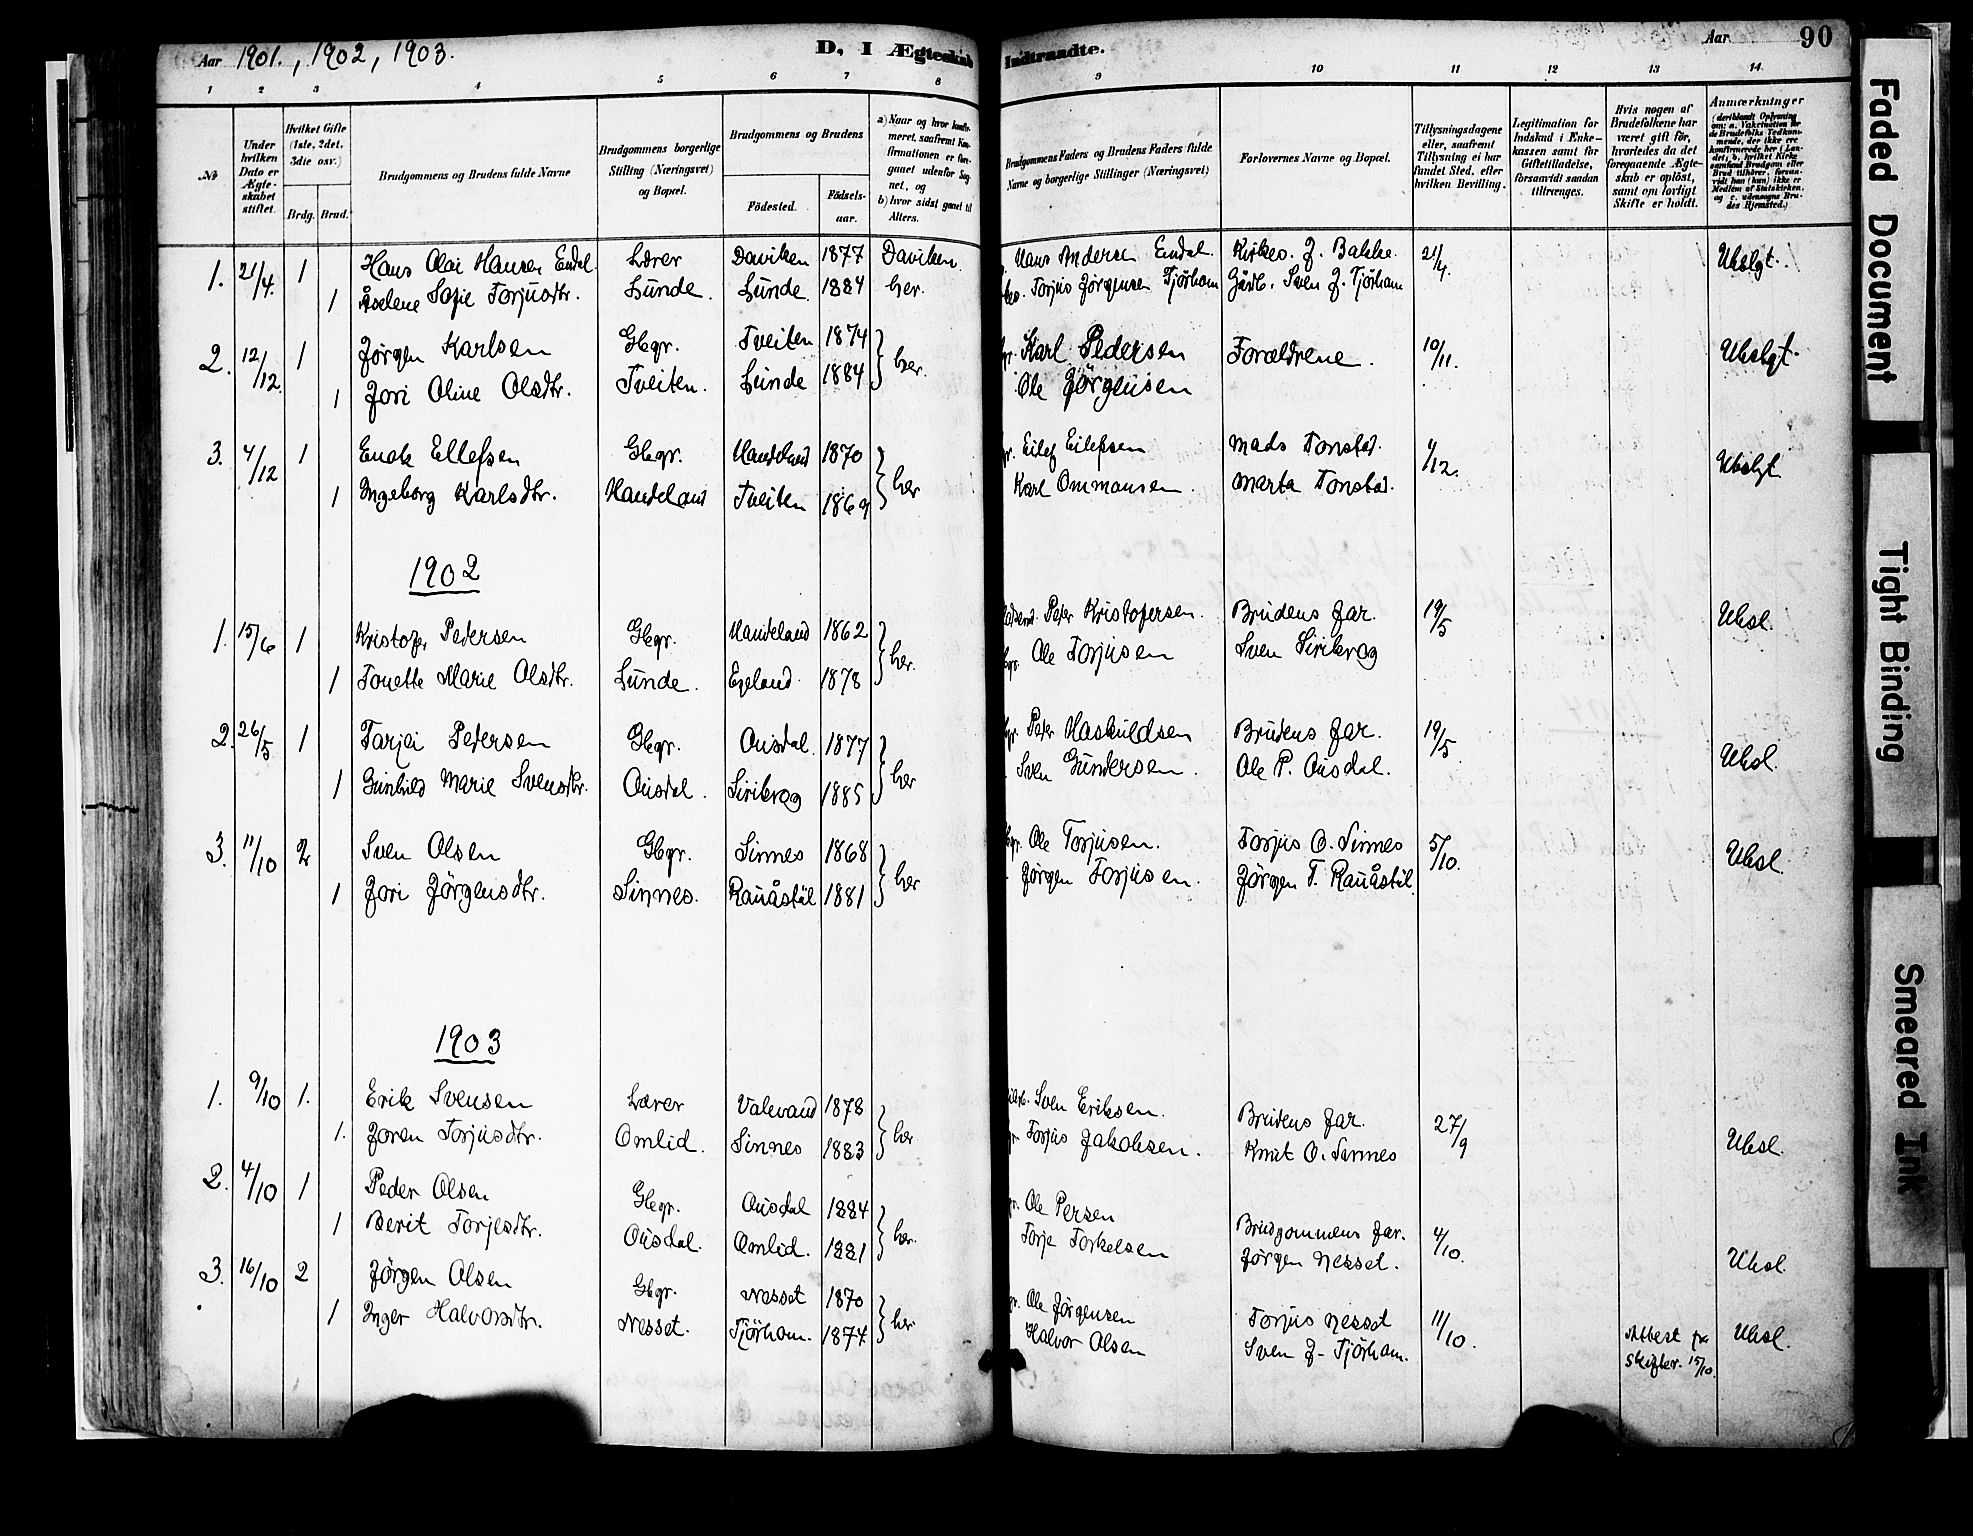 Aar 1901., 1902, 1903.
D, I Ægteskab Indtraadte.
Aar 90
1 2 3 4 5 6 7 8 9 10 11 12 13 14
No
Under hvilken Dato er Ægteskabet stiftet.
Hvilket Gifte (1ste, 2det, 3die osv.)
Brdg. Brud.
Brudgommens og Brudens fulde Navne
Brudgommens borgerlige Stilling (Næringsvei) og Bopæl.
Brudgommens og Brudens
Fødested. Fødselsaar.
a) Naar og hvor konfirmeret, saafremt Konfirmationen er foregaaet udenfor Sognet, og
b) hvor sidst gaaet til Alters.
Brudgommens Faders og Brudens Faders fulde Navne og borgerlige Stillinger (Næringsvei)
Forlovernes Navne og Bopæl.
Tillysningsdagene eller, saafremt Tillysning ei har fundet Sted, efter hvilken Bevilling.
Legitimation for Indskud i Enkekassen samt for Giftetilladelse, forsaavidt saadan tiltrænges.
Hvis nogen af Brudefolkene har været gift før, hvorledes da det foregaaende Ægteskab er opløst, samt om lovligt Skifte er holdt.
Anmærkninger
1. 21/4. 1 Hans Olai Hansen Endal. Lærer Daviken 1877 Daviken. Hans Andersen Endal. Kirkes. J. Bakke. 21/4. Ubslgt.
1 Åselene Sofie Torjusdtr. Lunde. Lunde 1884 her. Torjus Jörgensen Tjörhom Gårdb. Sven J. Tjörham
2. 12/12 1 Jörgen Karlsen Gbgr. Tveiten 1874 her. Karl Pedersen Forældrene. 10/11. Ubslgt.
1 Jori Oline Olsdtr. Tveiten. Lunde 1884 Ole Jörgensen
3. 4/12 1 Enok Ellefsen Gbgr. Handeland 1870 her Eilef Eilefsen Mads Tonstad. 1/12. Ubslgt
1 Ingeborg Karlsdtr. Handeland Tveiten 1869 Karl Ommansen. Marta Tonstad.
1902
1. 15/6 1 Kristofer Pedersen Gbgr. Handeland 1862 her. Peder Kristofersen. Brudens far. 19/5 Ubsl.
1 Tonette Marie Olsdtr. Lunde. Egeland 1878 Ole Torjusen Sven Sirikrog
2. 26/5 1 Tarjei Pedersen Gbgr. Ousdal. 1877 her Peder Haskuldsen Brudens far. 19/5. Ubsl.
1 Gunhild Marie Svensdtr. Ousdal. Sirikrog 1885 Sven Gundersen. Ole P. Ousdal.
3. 11/10 2 Sven Olsen Gbgr. Sinnes 1868 her Ole Torjusen. Torjus O. Sinnes 5/10. Ubsl.
1 Jori Jörgensdtr. Sinnes. Rauåstöl 1881 Jörgen Torjusen. Jörgen T. Rauåstöl.
1903
1. 9/10 1. Erik Svensen Lærer Valevand 1878 her Sven Eriksen. Brudens far. 27/9 Ubsl.
1. Joren Torjusdtr. Omlid. Sinnes 1883 Torjus Jakobsen. Knut O. Sinnes
2. 4/10 1 Peder Olsen Gbgr. Ousdal 1884 her. Ole Persen Brudgommens far. 4/10. Ubsl.
1 Berit Torjesdtr. Ousdal. Omlid. 1881 Torje Torkelsen Jörgen Nesset.
3. 16/10 2 Jörgen Olsen Gbgr. Nesset 1870 her Ole Jörgensen Torjus Nesset 11/10. Attest fra Skifter. 15/10. Ubsl.
1 Inger Halvorsdtr. Nesset. Tjörham. 1874 Halvor Olsen Sven J. Tjörham.
Faded Document
Tight Binding
Smeared Ink